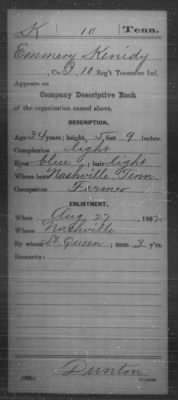 K 10 Tenn.
Emmery Kenidy
, Co. I, 10 Reg't Tennessee Inf.
Appears on
Company Descriptive Book
of the organization named above.
DESCRIPTION.
Age 34 years; height, 5 feet 9 inches.
Complexion light
Eyes blue; hair light
Where born Nashville Tenn
Occupation Farmer
ENLISTMENT.
When Aug 27, 1862.
Where Nashville
By whom Lt Queen; term 3 y'rs.
Remarks:
Dunton
Copyist.